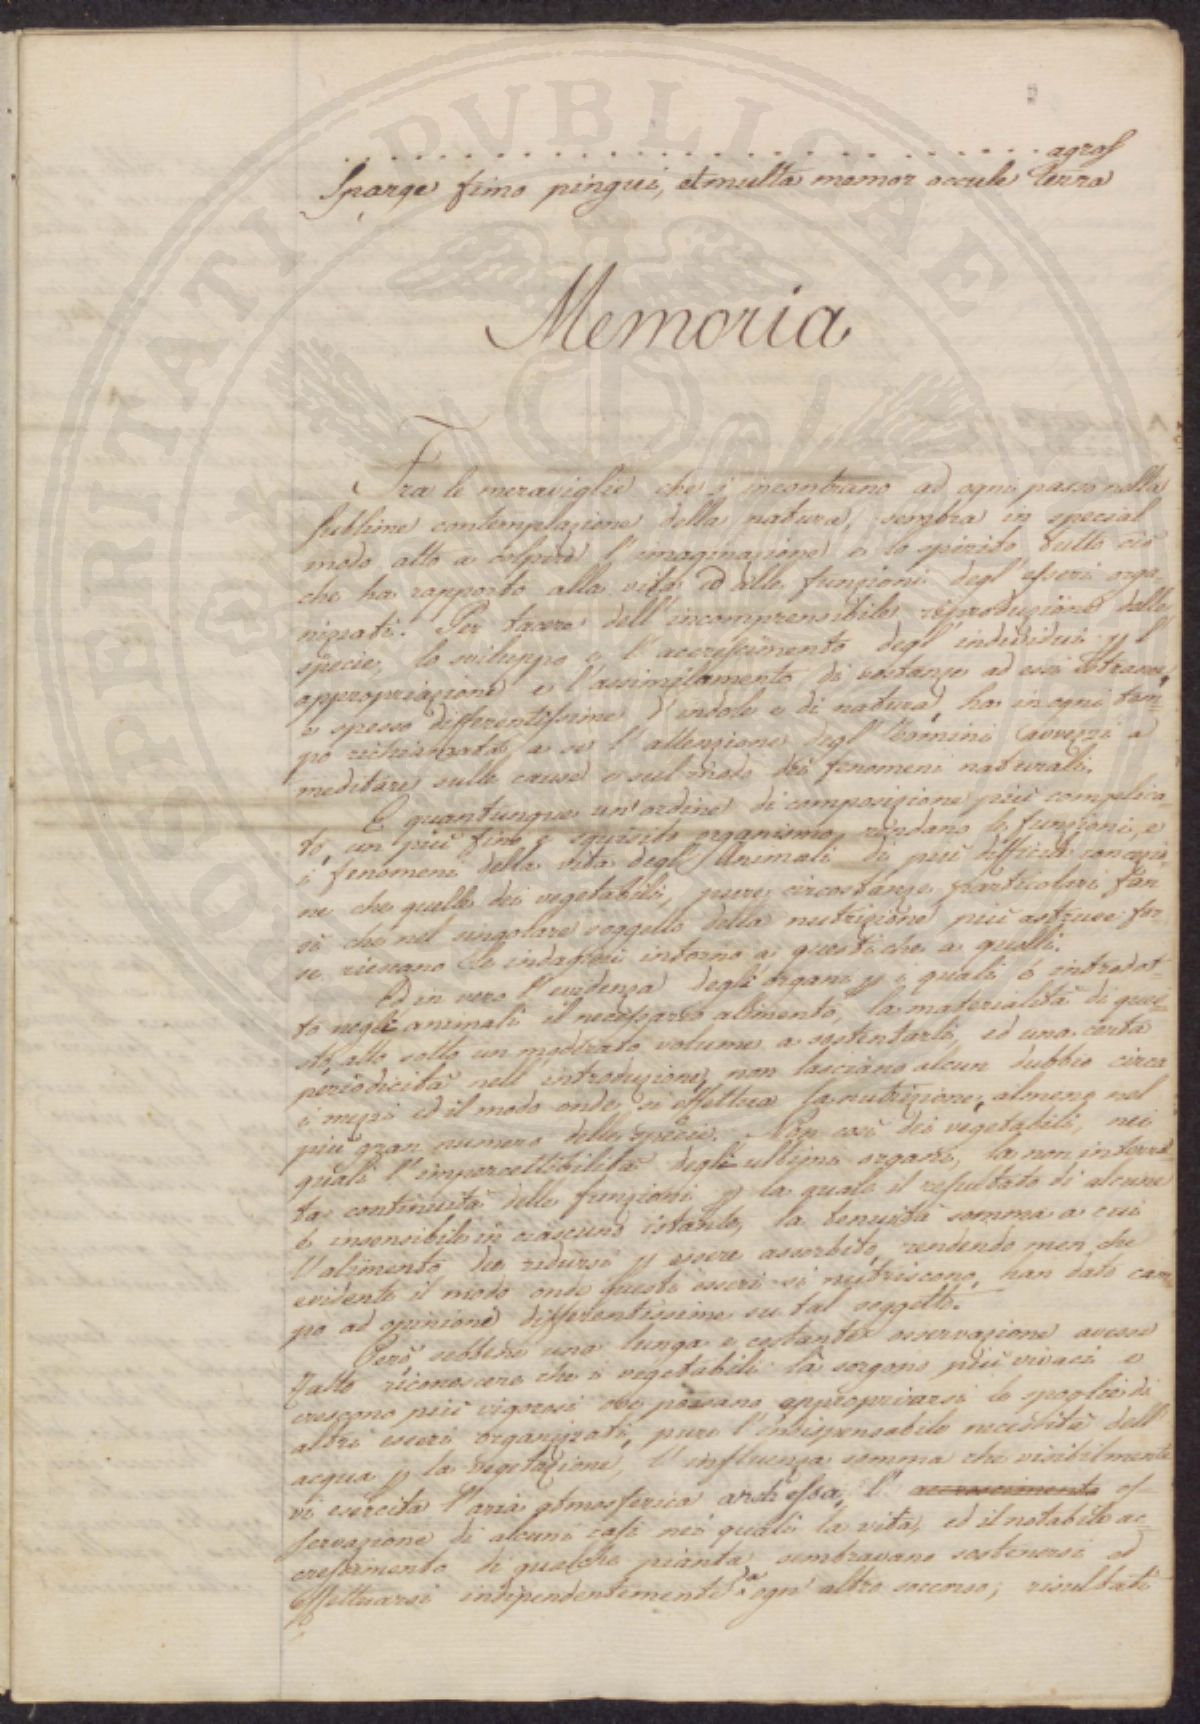 . . . . . . . . . . . . . . . . . . . . . . . . . . . . agros
Sparge fimo pingui, et multa memor occule terra
Memoria
Fra le meraviglie che s'incontrano ad ogni passo nella
sublime contemplazione della natura, sembra in special
modo atto a colpire l'imaginazione e lo spirito tutto ciò
che ha rapporto alla vita ed alle funzioni degl'esseri orga-
nizzati. Per tacere dell'incomprensibile riproduzione delle
specie, lo sviluppo e l'accrescimento degl'individui p l'
appropriazione e l'assimilamento di sostanze ad essi estranee,
e spesso differentissime d'indole e di natura, ha in ogni tem-
po richiamata a se l'attenzione degl'Uomini avvezzi a
meditare sulle cause e sul modo dei fenomeni naturali.
E quantunque un'ordine di composizione più complica-
to, un più fino e squisito organismo, rendano le funzioni, e
i fenomeni della vita degli Animali di più difficile concezio-
ne che quelle dei vegetabili, pure circostanze particolari fan
sì che nel singolare soggetto della nutrizione più astruse for-
se riescano le indagini intorno a questi che a quelli.
Ed in vero l'evidenza degli organi p i quali è introdot-
to negli animali il necessario alimento, la materialità di que-
sti, atto sotto un moderato volume a sostentarli, ed una certa
periodicità nell'introduzione, non lasciano alcun dubbio circa
i mezzi ed il modo onde si effettua la nutrizione, almeno nel
più gran numero delle specie. Non così dei vegetabili, nei
quali l'impercettibilità degli ultimi organi, la non interrot-
ta continuità delle funzioni p la quale il resultato di alcune
è insensibile in ciascuno istante, la tenuità somma a cui
l'alimento dee ridursi p essere assorbito, rendendo men che
evidente il modo onde questi esseri si nutriscono, han dato cam-
po ad opinione differentissime su tal soggetto.
Però sebbene una lunga e costante osservazione avesse
fatto riconoscere che i vegetabili là sorgono più vivaci e
crescono più vigorosi ove possano appropriarsi le spoglie di
altri esseri organizzati, pure l'indispensabile necessità dell'
acqua p la vegetazione, l'influenza somma che visibilmente
vi esercita l'aria atmosferica anch'essa, l' accrescimento os-
servazione di alcuni casi nei quali la vita, ed il notabile ac-
crescimento di qualche pianta sembravano sostenersi ed
effettuarsi indipendentemente da ogn'altro soccorso; risultati